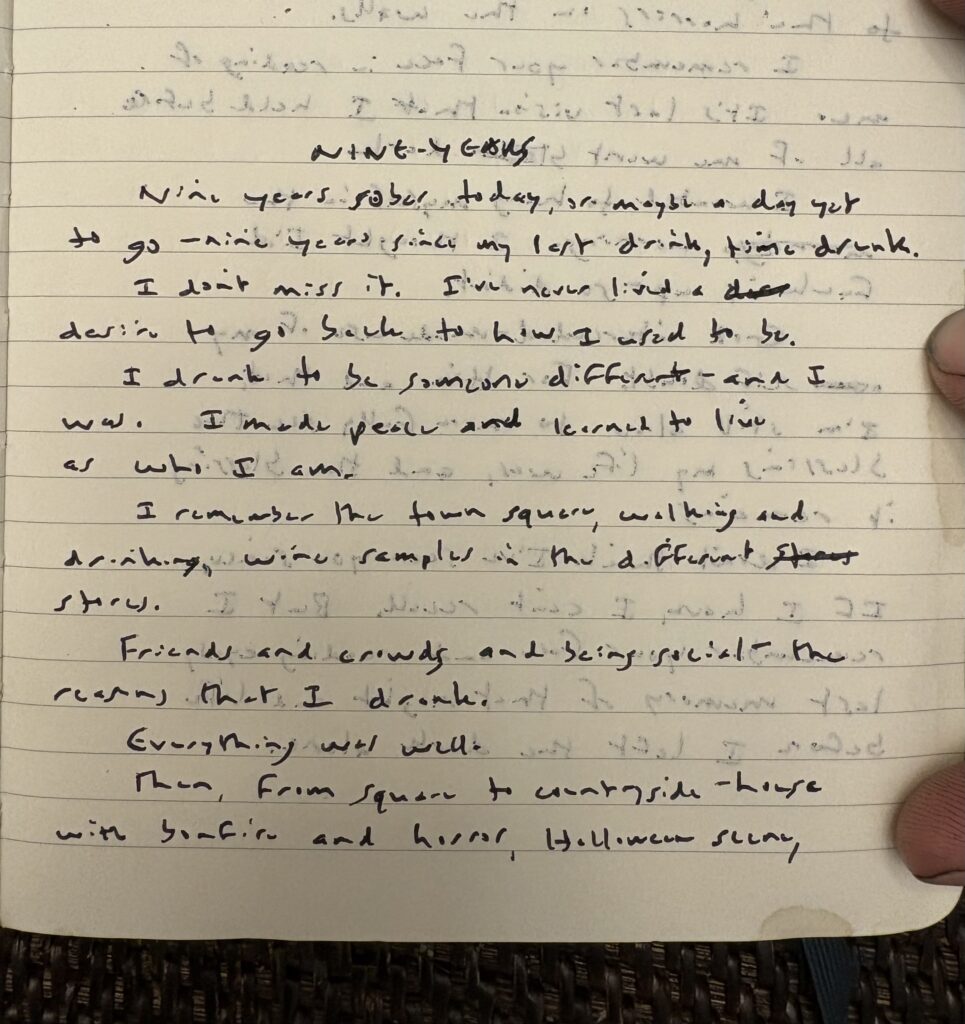 NINE-YEARS
Nine years sober today, or maybe a day yet
to go - nine years since my last drink, time drunk.
I don't miss it. I've never lived a
desire to go back to how I used to be.
I drank to be someone different - and I
was. I made peace and learned to live
as who I am.
I remember the town square, walking and
drinking, wine samples in the different stores
stores.
Friends and crowds and being social - the
reasons that I drank.
Everything was well.
Then, from square to countryside - house
with bonfire and horror, Halloween scene,